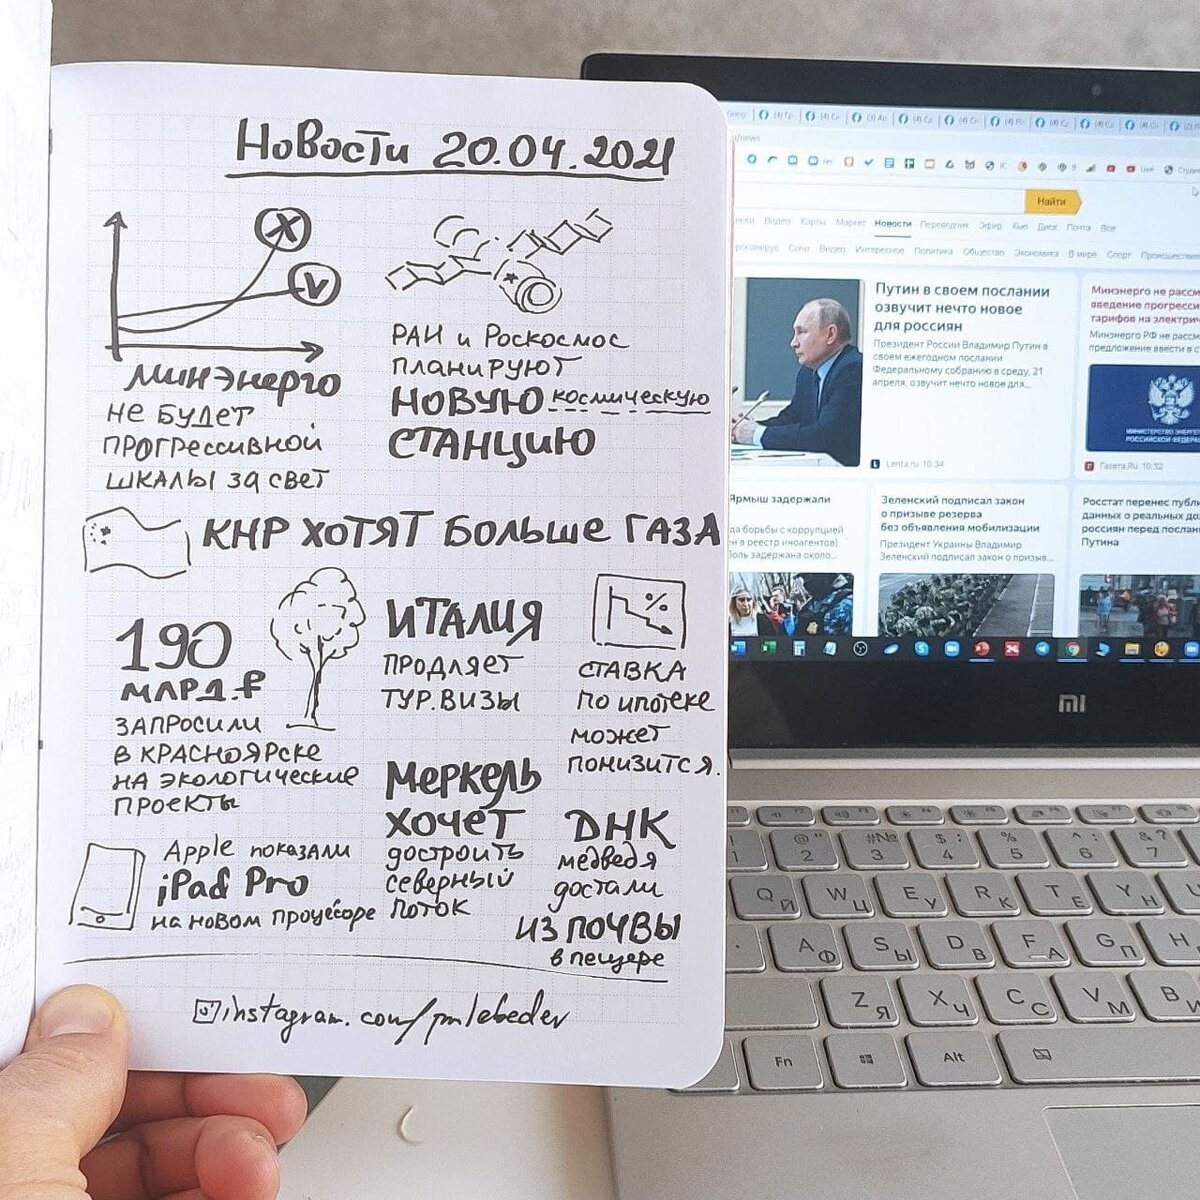 Новости 20.04.2021
X
V
минэнерго
не будет
прогрессивной
шкалы за свет
РАН и Роскосмос
планируют
новую космическую
станцию
КНР хотят больше газа
190
млрд.₽
запросили
в Красноярске
на экологические
проекты
Италия
продляет
тур.визы
%
ставка
по ипотеке
может
понизится.
Меркель
хочет
достроить
северный
поток
ДНК
медведя
достали
из почвы
в пещере
Apple показали
iPad Pro
на новом процессоре
instagram.com/pmlebedev
Найти
Видео Карты Маркет Новости Переводчик Эфир Кью Диск Почта Все
Сочи Видео Интересное Политика Общество Экономика В мире Спорт Происшествия
Путин в своем послании
озвучит нечто новое
для россиян
Президент России Владимир Путин в
своем ежегодном послании
Федеральному собранию в среду, 21
апреля, озвучит нечто новое для...
Lenta.ru 10:34
Минэнерго не рассм
введение прогресси
тарифов на электрич
Минэнерго РФ не рассм
предложение ввести в с
МИНИСТЕРСТВО ЭНЕРГЕ
РОССИЙСКОЙ ФЕДЕРА
Газета.Ru 10:52
Ярмыш задержали
да борьбы с коррупцией
н в реестр иноагентов)
боль задержана около...
Зеленский подписал закон
о призыве резерва
без объявления мобилизации
Президент Украины Владимир
Зеленский подписал закон о призыв...
Росстат перенес публи
данных о реальных до
россиян перед послан
Путина
mi
1 2 3 4 5 6 7
Q Й W Ц E У R К T Е Y Н
A Ф S Ы D В F А G П H
Z Я X Ч C С V М B И
Fn Alt